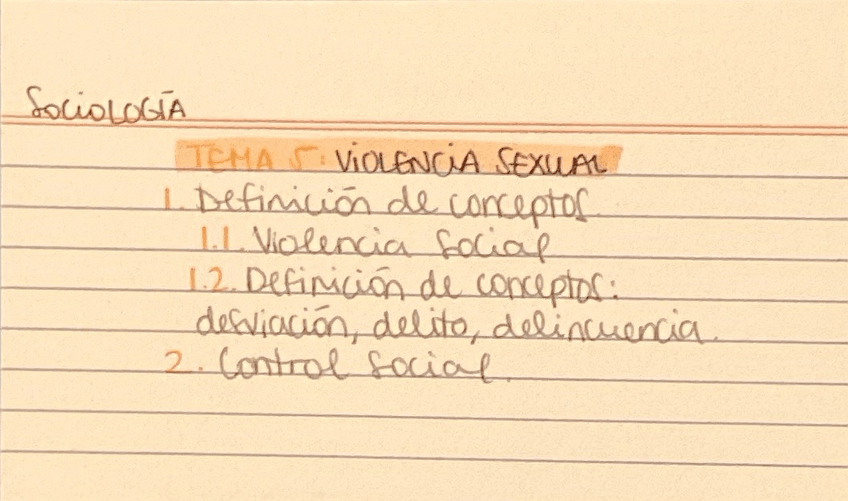 SOCIOLOGÍA
TEMA 5: VIOLENCIA SEXUAL
1. Definición de conceptos
1.1. Violencia social
1.2. Definición de conceptos:
desviación, delito, delincuencia.
2. Control social.